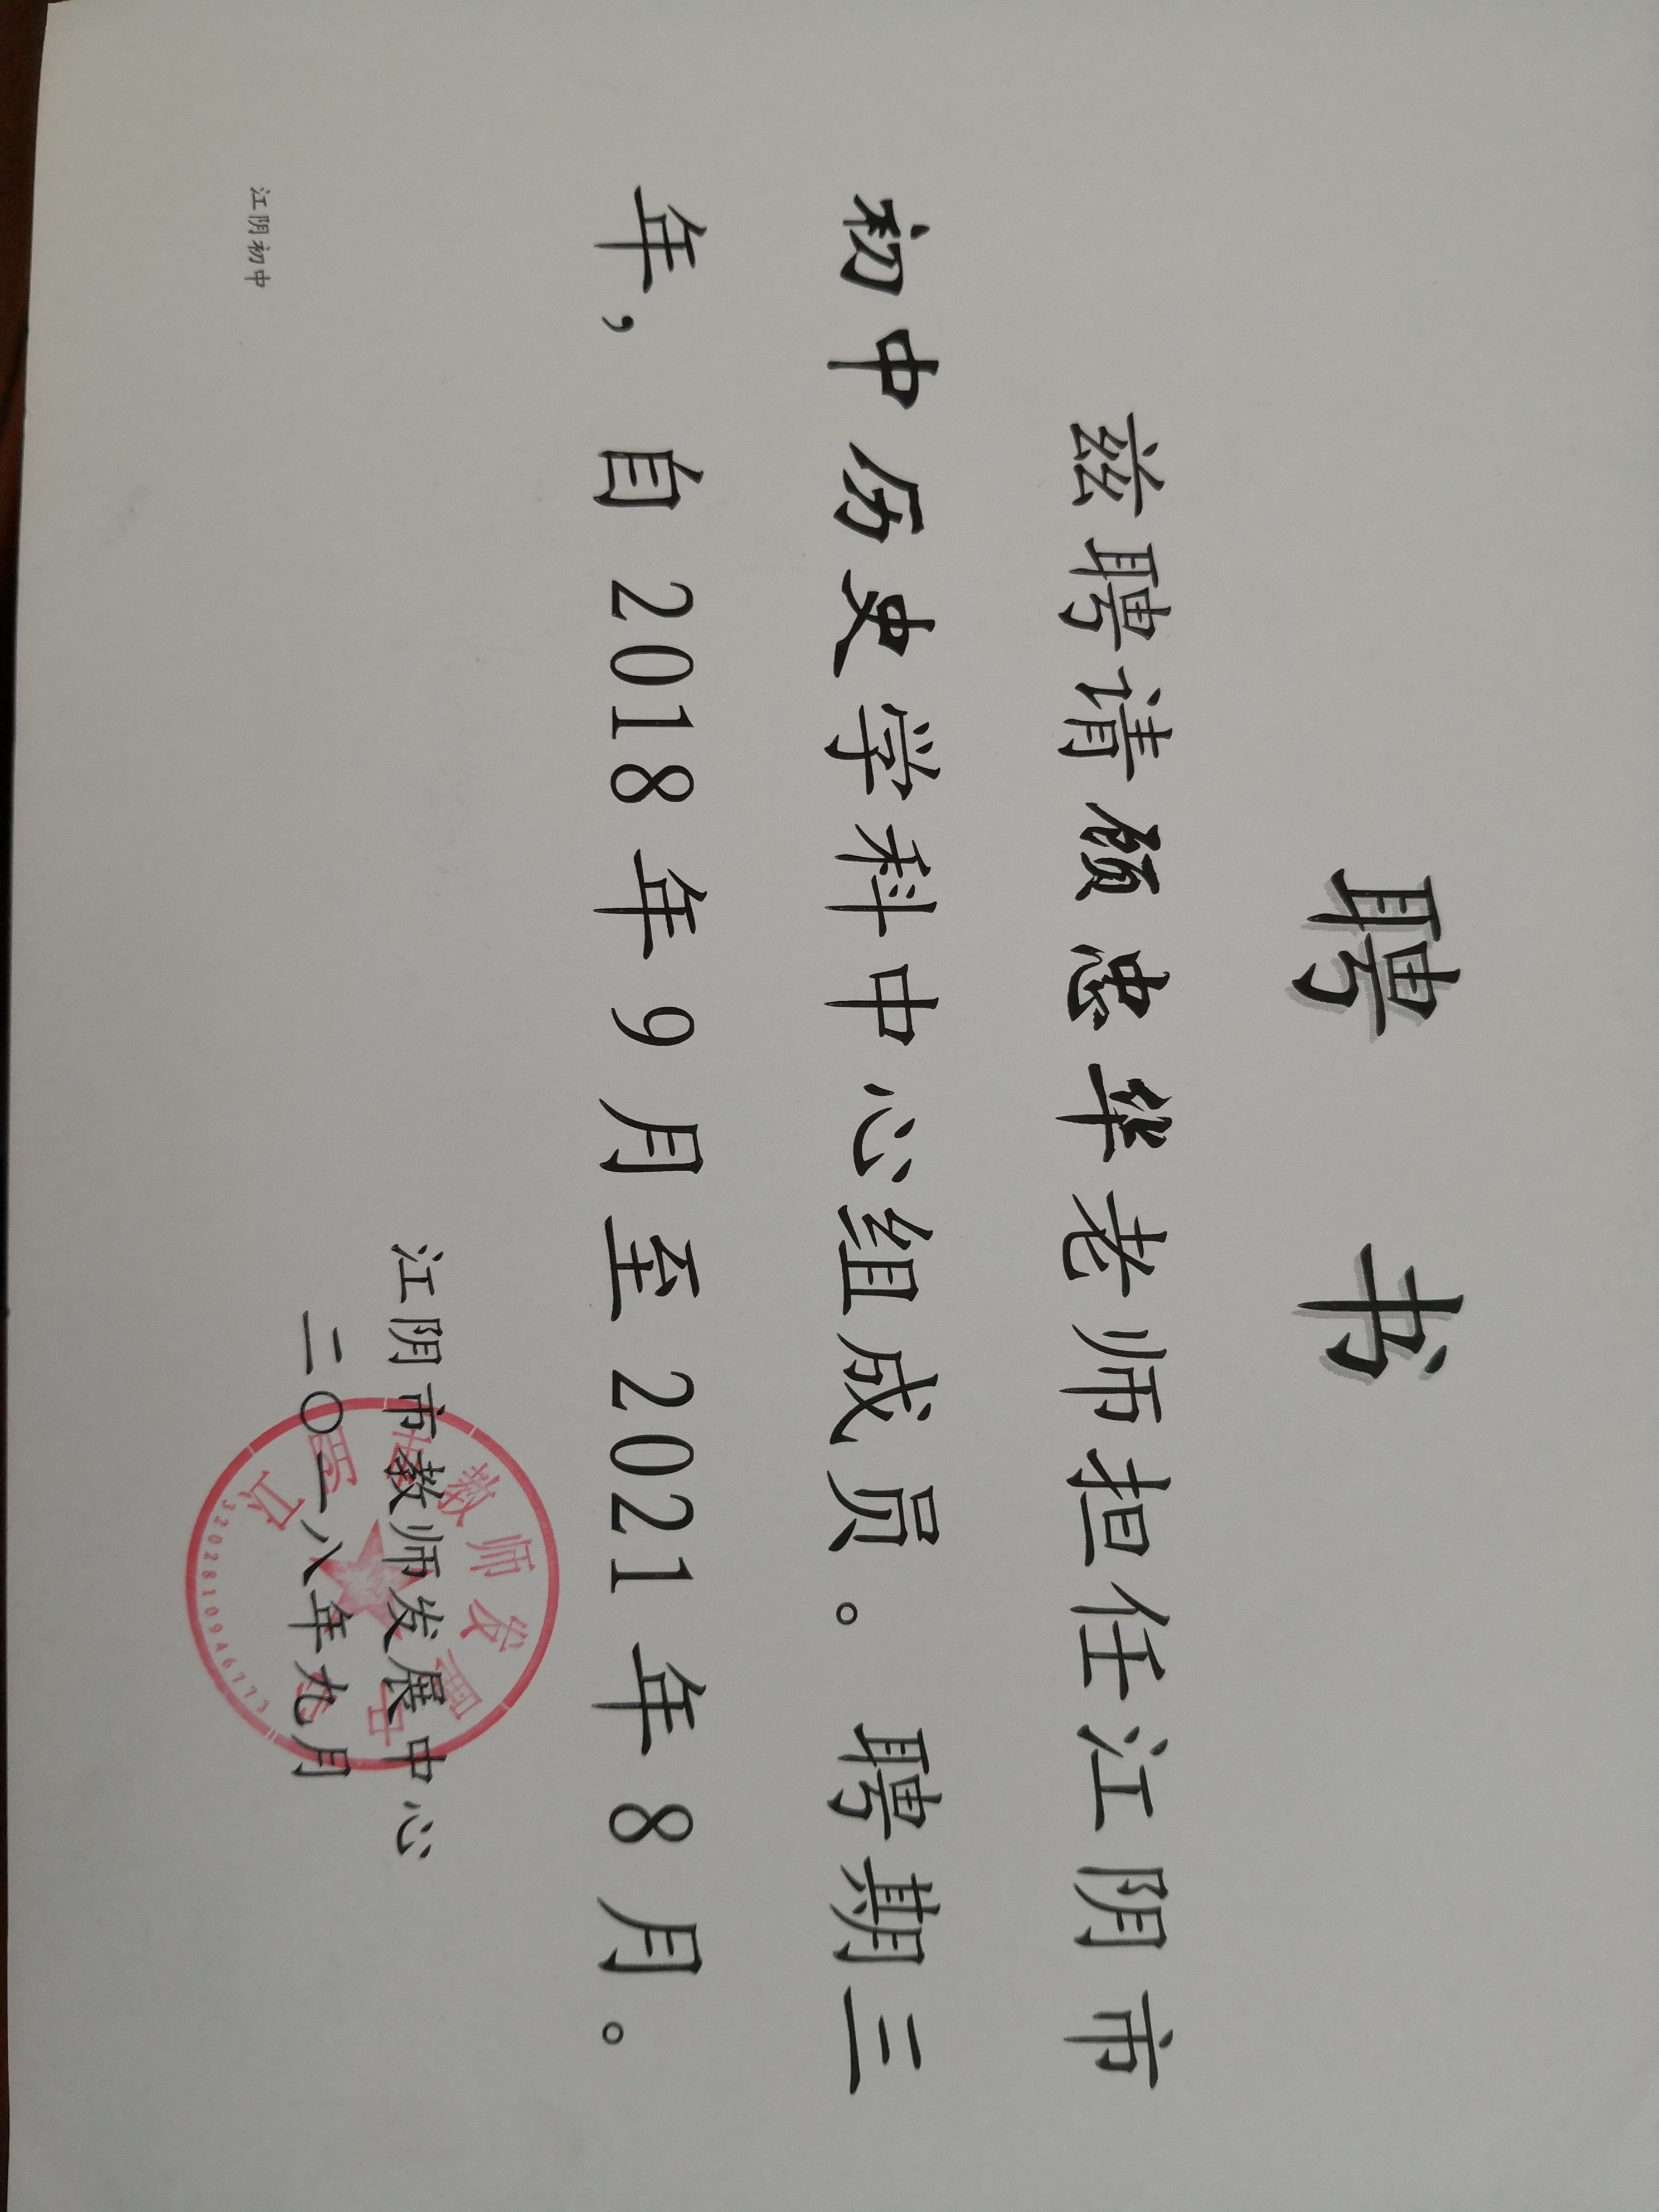 聘 书
兹聘请顾忠华老师担任江阴市
初中历史学科中心组成员。聘期三
年，自 2018 年 9 月至 2021 年 8 月。
江阴市教师发展中心
二〇一八年九月
江阴初中
江阴市教师发展中心
3202810946773